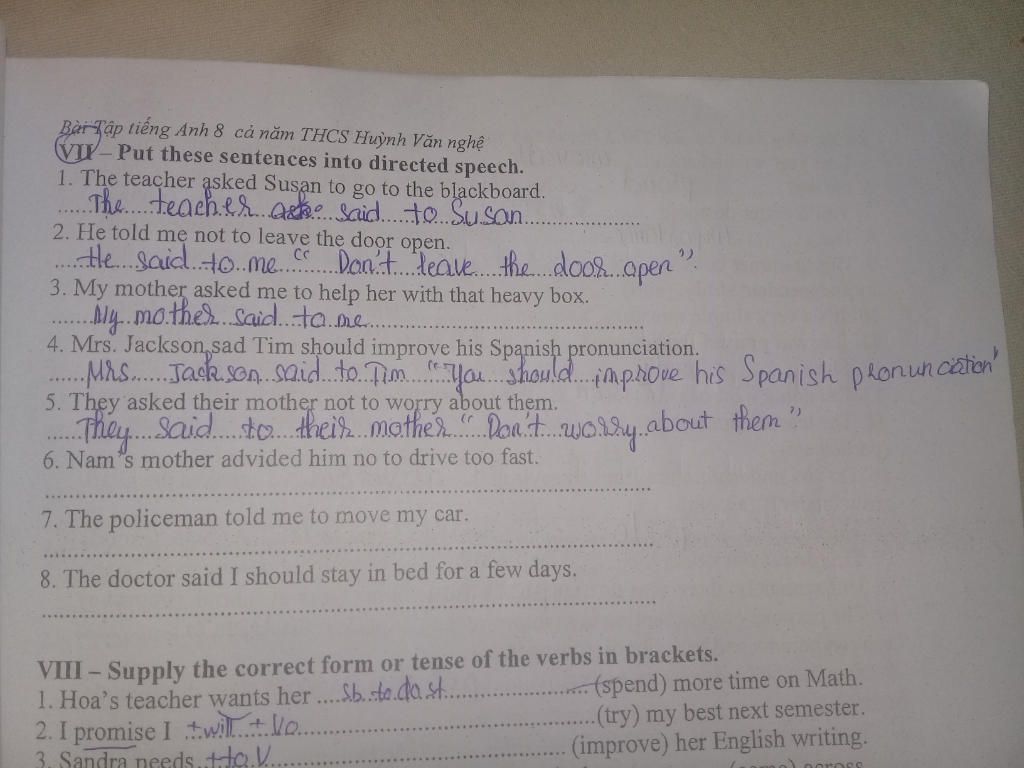 Bài Tập tiếng Anh 8 cả năm THCS Huỳnh Văn nghệ
VII – Put these sentences into directed speech.
1. The teacher asked Susan to go to the blackboard.
The teacher said to Susan
2. He told me not to leave the door open.
He said to me “ Don't leave the door open”.
3. My mother asked me to help her with that heavy box.
My mother said to me
4. Mrs. Jackson sad Tim should improve his Spanish pronunciation.
Mrs. Jackson said to Tim “You should improve his Spanish pronunciation”
5. They asked their mother not to worry about them.
They said to their mother “ Don't worry about them ”
6. Nam's mother advided him no to drive too fast.
7. The policeman told me to move my car.
8. The doctor said I should stay in bed for a few days.
VIII – Supply the correct form or tense of the verbs in brackets.
1. Hoa's teacher wants her sb. to do st (spend) more time on Math.
2. I promise I + will + Vo (try) my best next semester.
3. Sandra needs + to V (improve) her English writing.
across